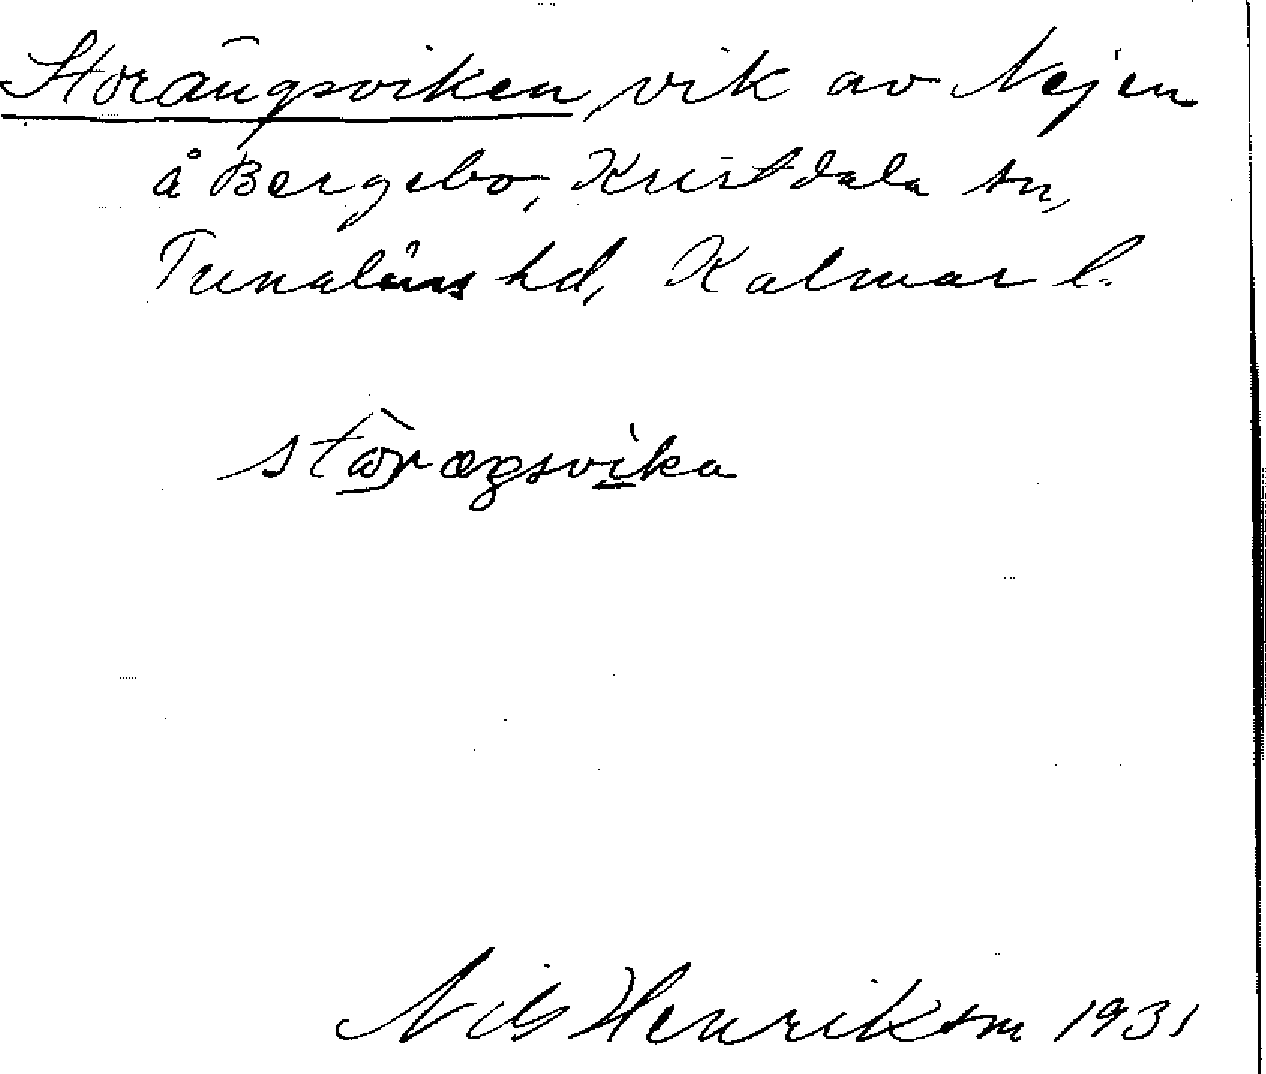 Storängsviken, vik av Nejen
å Bergebo, Kristdala sn,
Tunaläns hd, Kalmar l.
stòrægsvika
Nils Henrikson 1931